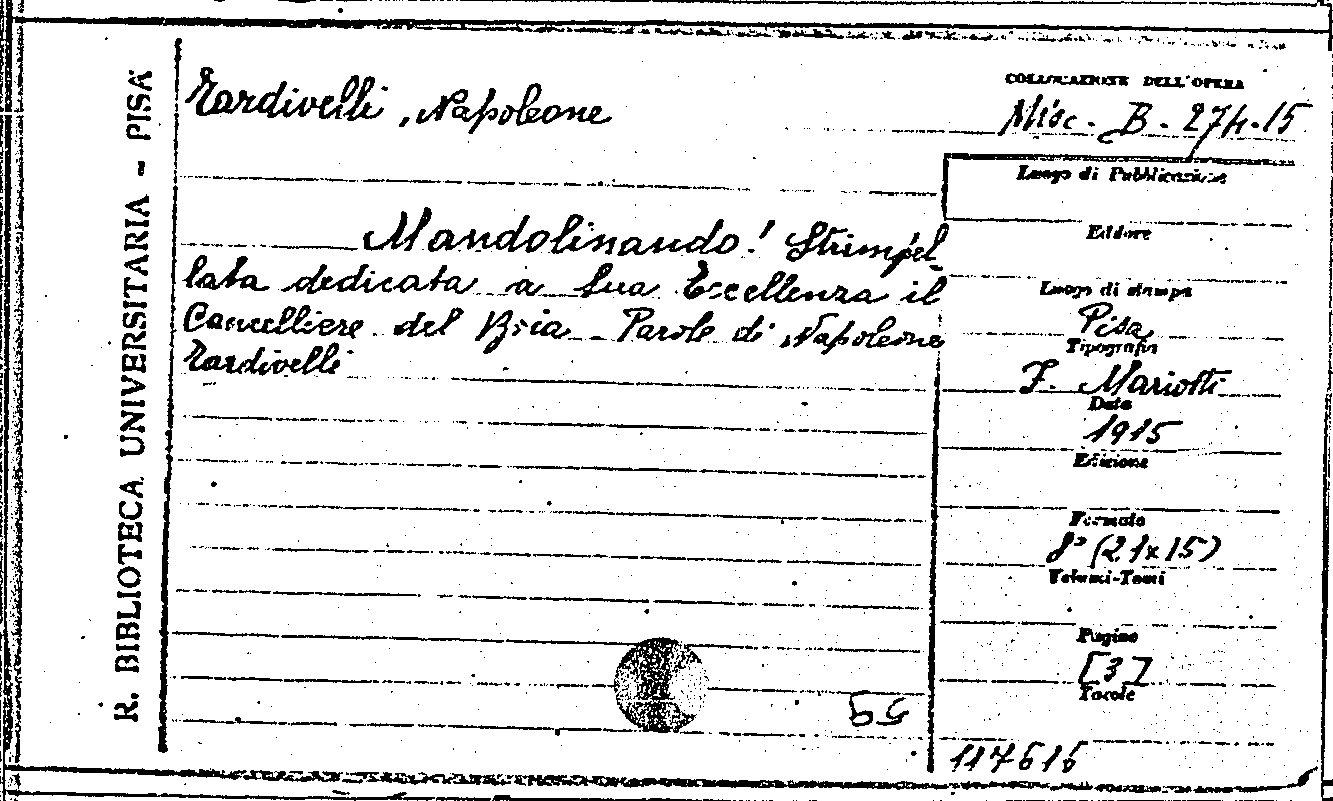 R. BIBLIOTECA UNIVERSITARIA - PISA
Tardivelli, Napoleone
COLLOCAZIONE DELL'OPERA
Misc. B. 274.15
Mandolinando! Strimpel-
lata dedicata a Sua Eccellenza il
Cancelliere del Bria Parole di Napoleone
Tardivelli
Luogo di Pubblicazione
Editore
Luogo di stampa
Pisa
Tipografia
F. Mariotti
Data
1915
Edizione
Formato
8° (21x15)
Volumi-Tomi
Pagine
[3]
Tavole
117616